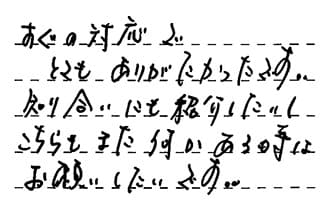 すぐの対応で
とてもありがたかったです。
知り合いにも紹介したいし
こちらもまた何かある時は
お願いしたいです。